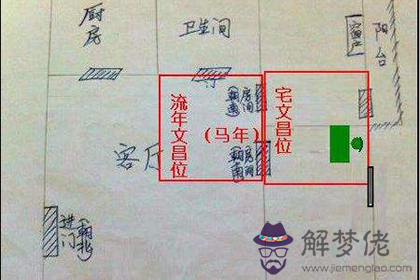 厨房
卫生间
窗户
阳台
流年文昌位
(马年)
宅文昌位
房间
(朝南)
客厅
房间
(朝南)
进门
(朝北)
解梦佬
www.jiemenglao.com